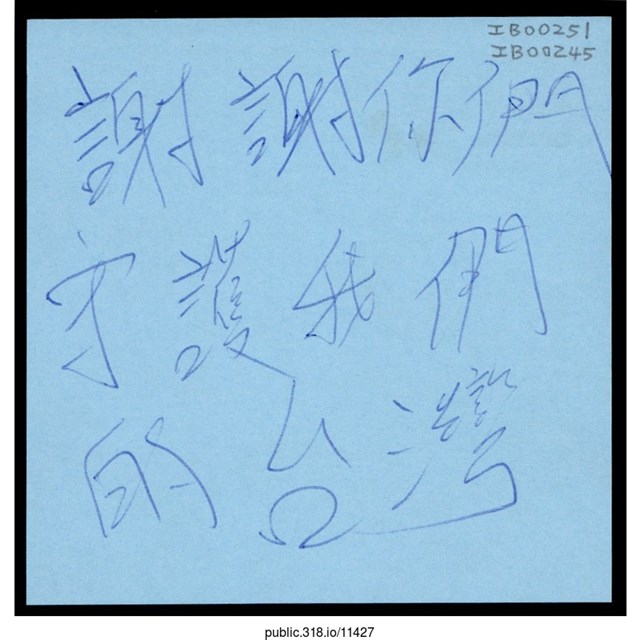 IB00251
IB00245
謝謝你們
守護我們
的台灣
public.318.io/11427